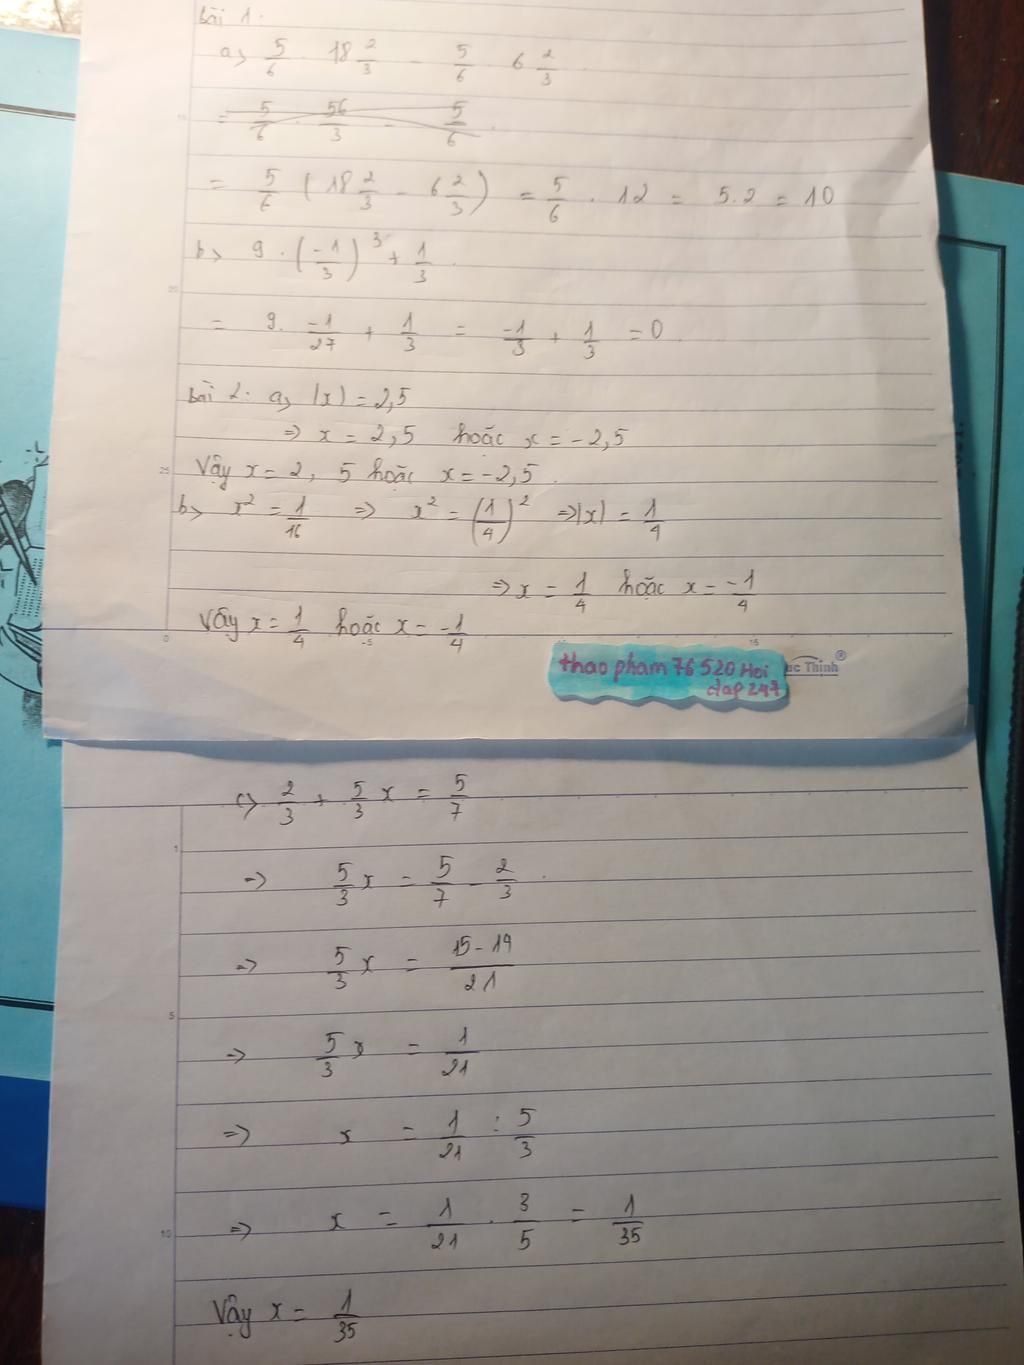 bài 1.
a> 5/6 . 18 2/3 - 5/6 . 6 2/3
= 5/6 . 56/3 - 5/6 .
= 5/6 (18 2/3 - 6 2/3) = 5/6 . 12 = 5.2 = 10
b> 9 . (-1/3)^3 + 1/3 .
= 9. -1/27 + 1/3 = -1/3 + 1/3 = 0
bài 2: a> |x) = 2,5
=> x = 2,5 hoặc x = -2,5
Vậy x = 2, 5 hoặc x = -2,5 .
b> x^2 = 1/16 => x^2 = (1/4)^2 =>|x| = 1/4
=> x = 1/4 hoặc x = -1/4
Vậy x = 1/4 hoặc x = -1/4
thao pham 76 520 Hoi
dap 247
c> 2/3 + 5/3 x = 5/7
=> 5/3 x = 5/7 - 2/3 .
=> 5/3 x = 15-14/21
=> 5/3 x = 1/21
=> x = 1/21 : 5/3
=> x = 1/21 . 3/5 = 1/35
Vậy x = 1/35